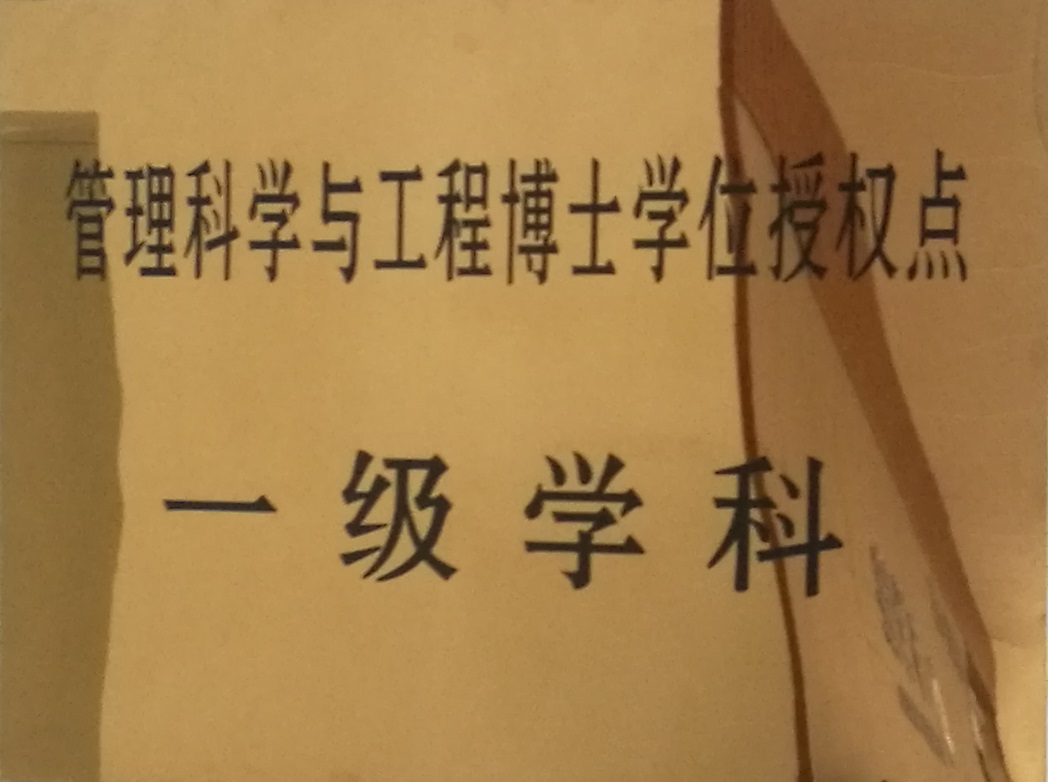 管理科学与工程博士学位授权点
一级学科